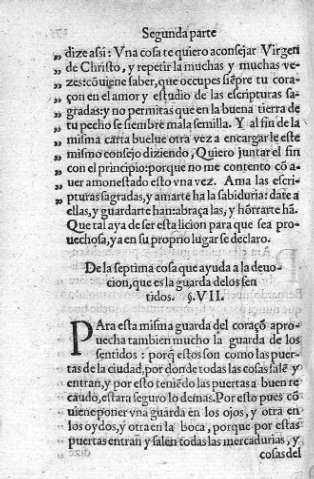 Segunda parte
dize assi: Vna cosa te quiero aconsejar Virgen
„ de Christo, y repetirla muchas y muchas ve-
„ zes: cōuiene saber, que occupes siēpre tu cora-
„ çon en el amor y estudio de las escripturas sa-
„ gradas: y no permitas que en la buena tierra de
„ tu pecho se siembre mala semilla. Y al fin de la
„ misma carta buelue otra vez a encargarle este
„ mismo consejo diziendo, Quiero juntar el fin
„ con el principio: porque no me contento cō a-
„ uer amonestado esto vna vez. Ama las escri-
„ pturas sagradas, y amarte ha la sabiduria: date a
„ ellas, y guardarte han: abraça las, y hōrrarte hā.
Que tal aya de ser esta licion para que sea pro-
uechosa, ya en su proprio lugar se declaro.
De la septima cosa que ayuda a la deuo-
cion, que es la guarda de los sen
tidos. §. VII.
PAra esta misma guarda del coraçō apro-
uecha tambien mucho la guarda de los
sentidos: porq̄ estos son como las puer-
tas de la ciudad, por donde todas cosas salē y
entran, y por esto teniēdo las puertas a buen re-
caudo, estara seguro lo demas. Por esto pues cō
uiene poner vna guarda en los ojos, y otra en
los oydos, y otra en la boca, porque por estas
puertas entran y salen todas las mercadurias, y
cosas del